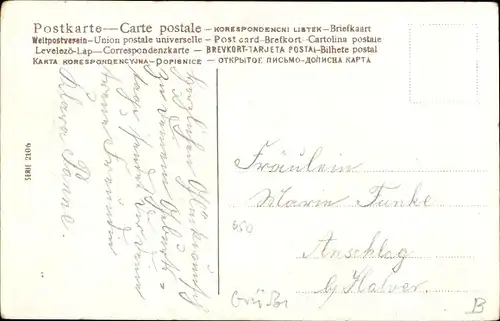 Postkarte — Carte postale — KORESPONDENČNI LISTEK — Briefkaart
Weltpostverein — Union postale universelle — Post card — Brefkort — Cartolina postale
Levelező-Lap — Correspondenzkarte — BREVKORT — TARJETA POSTAL — Bilhete postal
KARTA KORESPONDENCYJNA — DOPISNICE — ОТКРЫТОЕ ПИСЬМО — ДОПИСНА КАРТА
SERIE 2106
Herzlichen Glückwunsch
zu Deinem Geburts-
tage sendet Dir Deine
treue Freundin
Klara
Fräulein
Marie Funke
Anschlag
b/ Halver.
650
Grüße
B